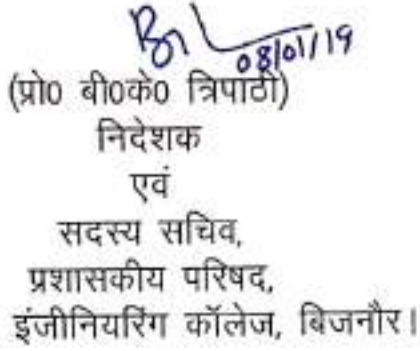 08/01/19
(प्रो0 बी0के0 त्रिपाठी)
निदेशक
एवं
सदस्य सचिव,
प्रशासकीय परिषद,
इंजीनियरिंग कॉलेज, बिजनौर।